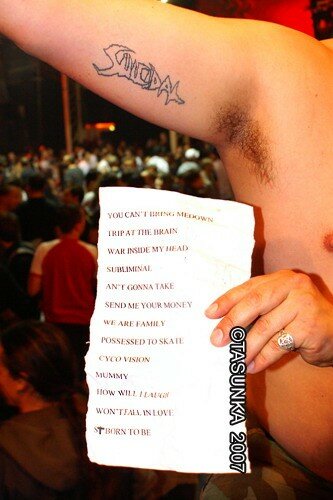 SUICIDAL
YOU CAN'T BRING MEDOWN
TRIP AT THE BRAIN
WAR INSIDE MY HEAD
SUBLIMINAL
AN'T GONNA TAKE
SEND ME YOUR MONEY
WE ARE FAMILY
POSSESSED TO SKATE
CYCO VISION
MUMMY
HOW WILL I LAUGH
WON'T FALL IN LOVE
ST BORN TO BE
©TASUNKA 2007